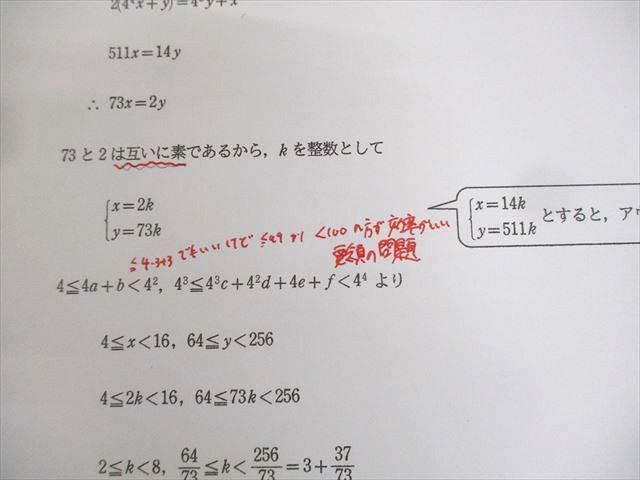 2(4⁴x+y)=4²y+x
511x=14y
∴ 73x=2y
73 と 2 は互いに素であるから，k を整数として
{x=2k
y=73k
{x=14k
y=511k とすると，ア
≦4·3+3 でもいいけど ≦99 より <100 の方が 効率がいい
要領の問題
4≦4a+b<4²，4³≦4³c+4²d+4e+f<4⁴ より
4≦x<16，64≦y<256
4≦2k<16，64≦73k<256
2≦k<8，64/73≦k<256/73=3+37/73